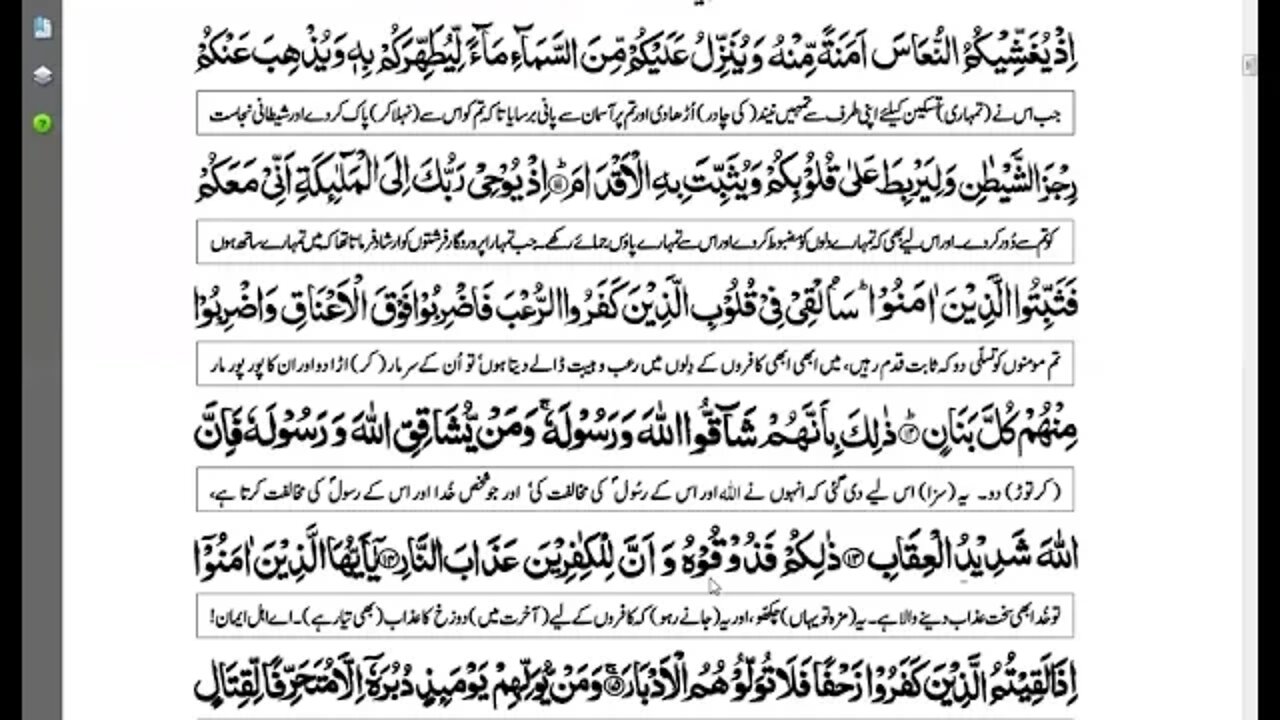 اِذْ يُغَشِّيْكُمُ النُّعَاسَ اَمَنَةً مِّنْهُ وَيُنَزِّلُ عَلَيْكُمْ مِّنَ السَّمَآءِ مَآءً لِّيُطَهِّرَكُمْ بِهٖ وَيُذْهِبَ عَنْكُمْ
جب اس نے (تمہاری) تسکین کیلئے اپنی طرف سے تمہیں نیند (کی چادر) اُڑھا دی اور تم پر آسمان سے پانی برسایا تاکہ تم کو اس سے (نہلا کر) پاک کر دے اور شیطانی نجاست
رِجْزَ الشَّيْطٰنِ وَلِيَرْبِطَ عَلٰى قُلُوْبِكُمْ وَيُثَبِّتَ بِهِ الْاَقْدَامَ ؕ۝۱۱ اِذْ يُوْحِىْ رَبُّكَ اِلَى الْمَلٰٓئِكَةِ اَنِّىْ مَعَكُمْ
کو تم سے دُور کر دے۔ اور اس لیے بھی کہ تمہارے دلوں کو مضبوط کر دے اور اس سے تمہارے پاؤں جمائے رکھے۔ جب تمہارا پروردگار فرشتوں کو ارشاد فرماتا تھا کہ میں تمہارے ساتھ ہوں
فَثَبِّتُوا الَّذِيْنَ اٰمَنُوْا ؕ سَاُلْقِىْ فِىْ قُلُوْبِ الَّذِيْنَ كَفَرُوا الرُّعْبَ فَاضْرِبُوْا فَوْقَ الْاَعْنَاقِ وَاضْرِبُوْا
تم مومنوں کو تسلّی دو کہ ثابت قدم رہیں، میں ابھی ابھی کافروں کے دِلوں میں رعب و ہیبت ڈالے دیتا ہوں تو اُن کے سر مار (کر) اڑا دو اور ان کا پور پور مار
مِنْهُمْ كُلَّ بَنَانٍ ؕ۝۱۲ ذٰلِكَ بِاَنَّهُمْ شَآقُّوا اللّٰهَ وَرَسُوْلَهٗ ۚ وَمَنْ يُّشَاقِقِ اللّٰهَ وَرَسُوْلَهٗ فَاِنَّ
(کر توڑ) دو۔ یہ (سزا) اس لیے دی گئی کہ انہوں نے اللہ اور اس کے رسُولؐ کی مخالفت کی اور جو شخص خُدا اور اس کے رسولؐ کی مخالفت کرتا ہے،
اللّٰهَ شَدِيْدُ الْعِقَابِ ۝۱۳ ذٰلِكُمْ فَذُوْقُوْهُ وَاَنَّ لِلْكٰفِرِيْنَ عَذَابَ النَّارِ ۝۱۴ يٰٓاَيُّهَا الَّذِيْنَ اٰمَنُوْٓا
تو خُدا بھی سخت عذاب دینے والا ہے۔ یہ (مزہ تو یہاں) چکھو، اور یہ (جانے رہو) کہ کافروں کے لیے (آخرت میں) دوزخ کا عذاب (بھی تیار ہے)۔ اے اہل ایمان!
اِذَا لَقِيْتُمُ الَّذِيْنَ كَفَرُوْا زَحْفًا فَلَا تُوَلُّوْهُمُ الْاَدْبَارَ ۚ۝۱۵ وَمَنْ يُّوَلِّهِمْ يَوْمَئِذٍ دُبُرَهٗٓ اِلَّا مُتَحَرِّفًا لِّقِتَالٍ